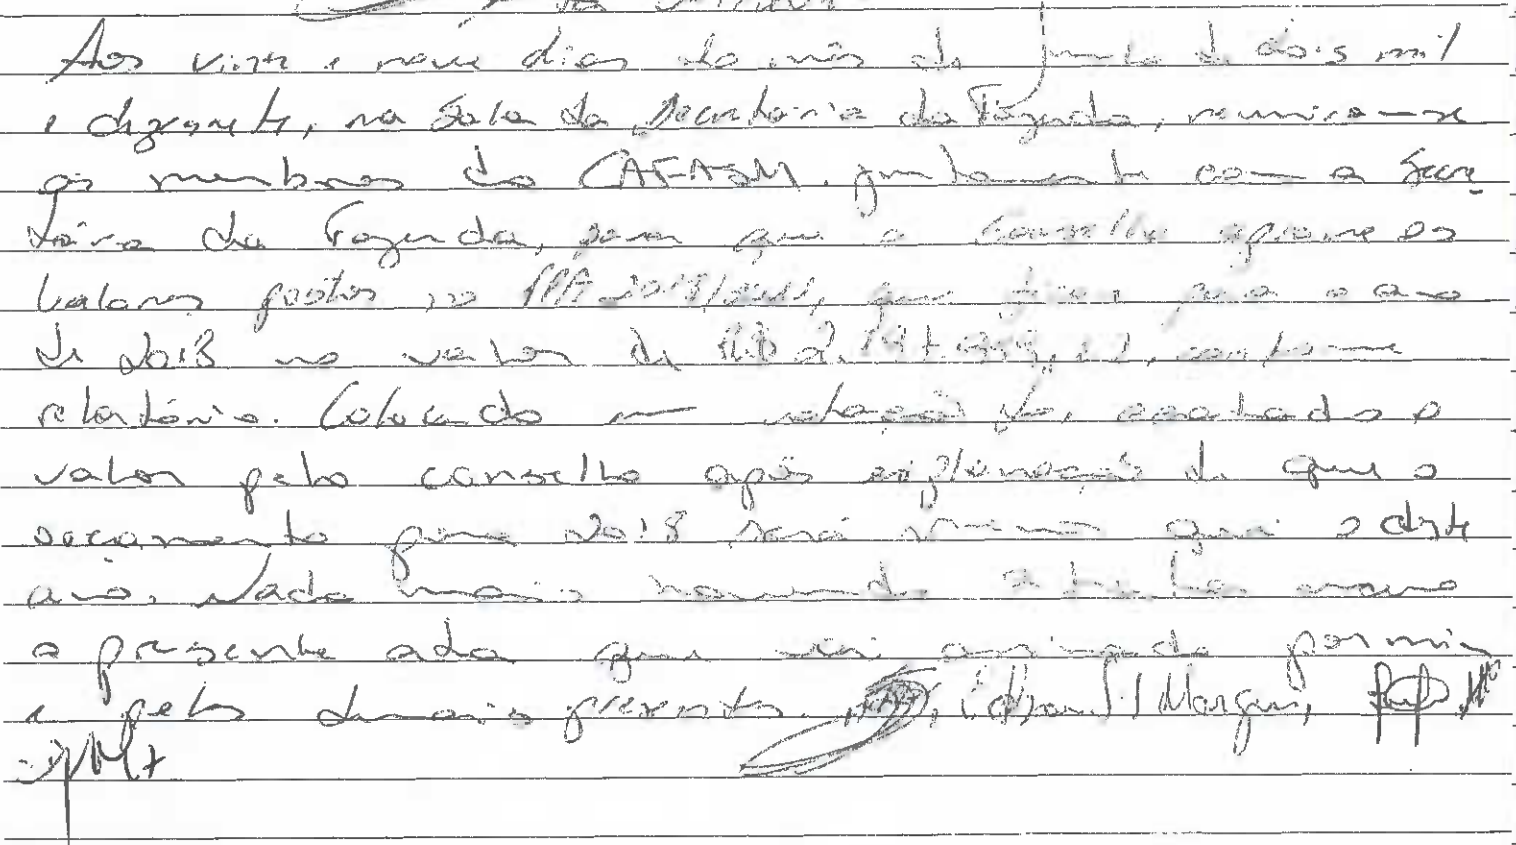 Aos vinte e nove dias do mês de junho de dois mil
e dezessete, na Sala da Secretária da Fazenda, reuniram-se
os membros do CAFASM. juntamente com a Secre
tária da Fazenda, para que o Conselho aprove os
valores postos no PPA 2018/2021, que ficou para o ano
de 2018 no valor de R$ 2. conforme
relatório. Colocando em votação foi acatado o
valor pelo conselho após explanação de que o
orçamento para 2018 será mesmo que o deste
ano. Nada mais havendo a tratar encerro
a presente ata que vai assinada por mim
e pelos demais presentes.